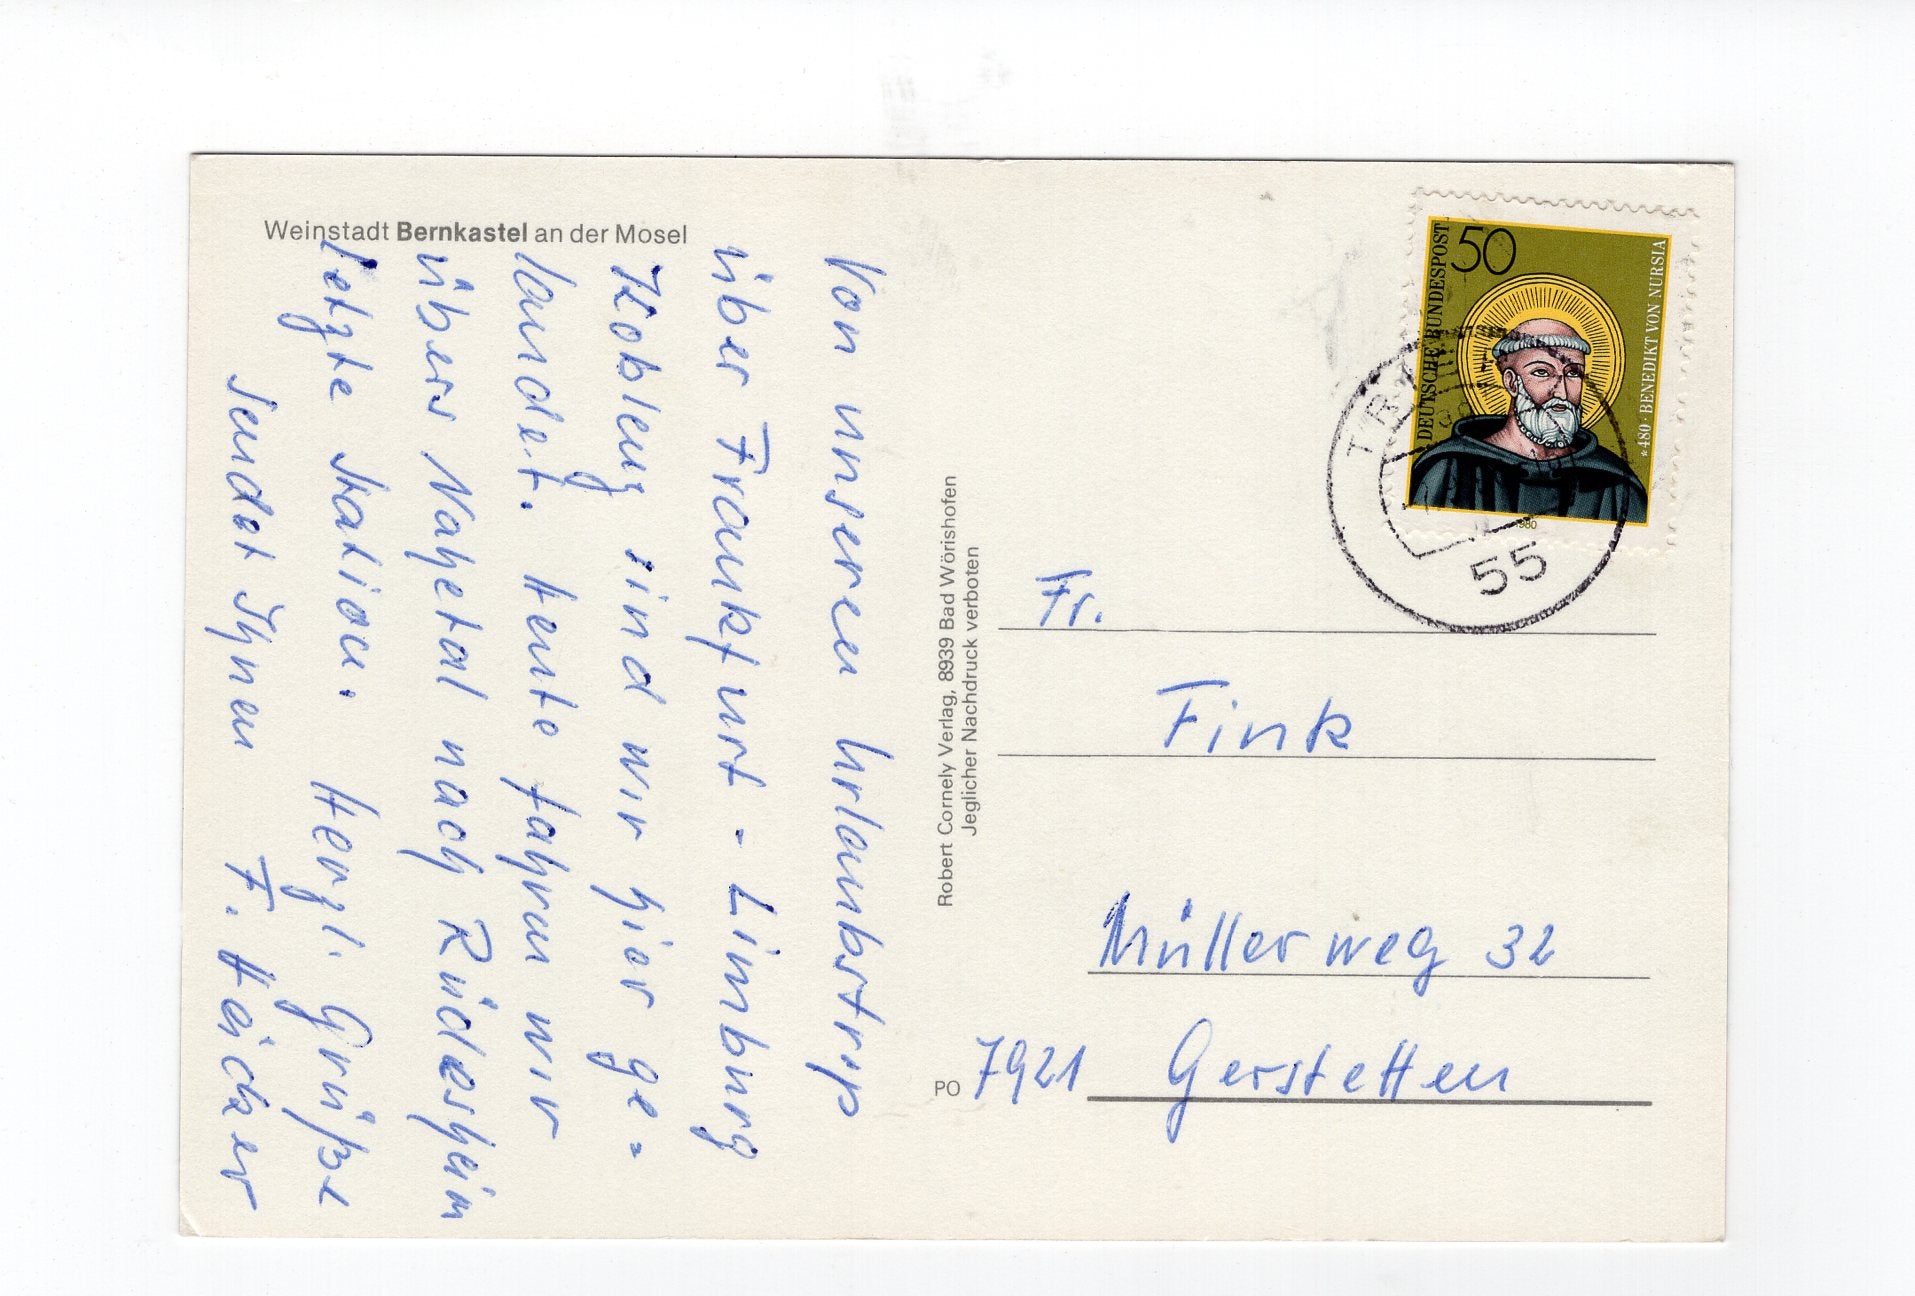 Weinstadt Bernkastel an der Mosel
Von unseren Urlaubstrip
über Frankfurt - Limburg
Koblenz sind wir hier ge=
landet. Heute fahren wir
übers Nahetal nach Rüdesheim
letzte Station. Herzl. Grüße
sendet Ihnen F. Häcker
Robert Cornely Verlag, 8939 Bad Wörishofen
Jeglicher Nachdruck verboten
DEUTSCHE BUNDESPOST
50
*480 · BENEDIKT VON NURSIA
1980
55
Fr.
Fink
Müllerweg 32
PO 7921 Gerstetten